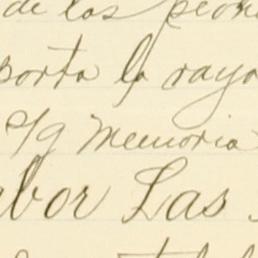 de los peon
porta la raya
Memoria
abor Las